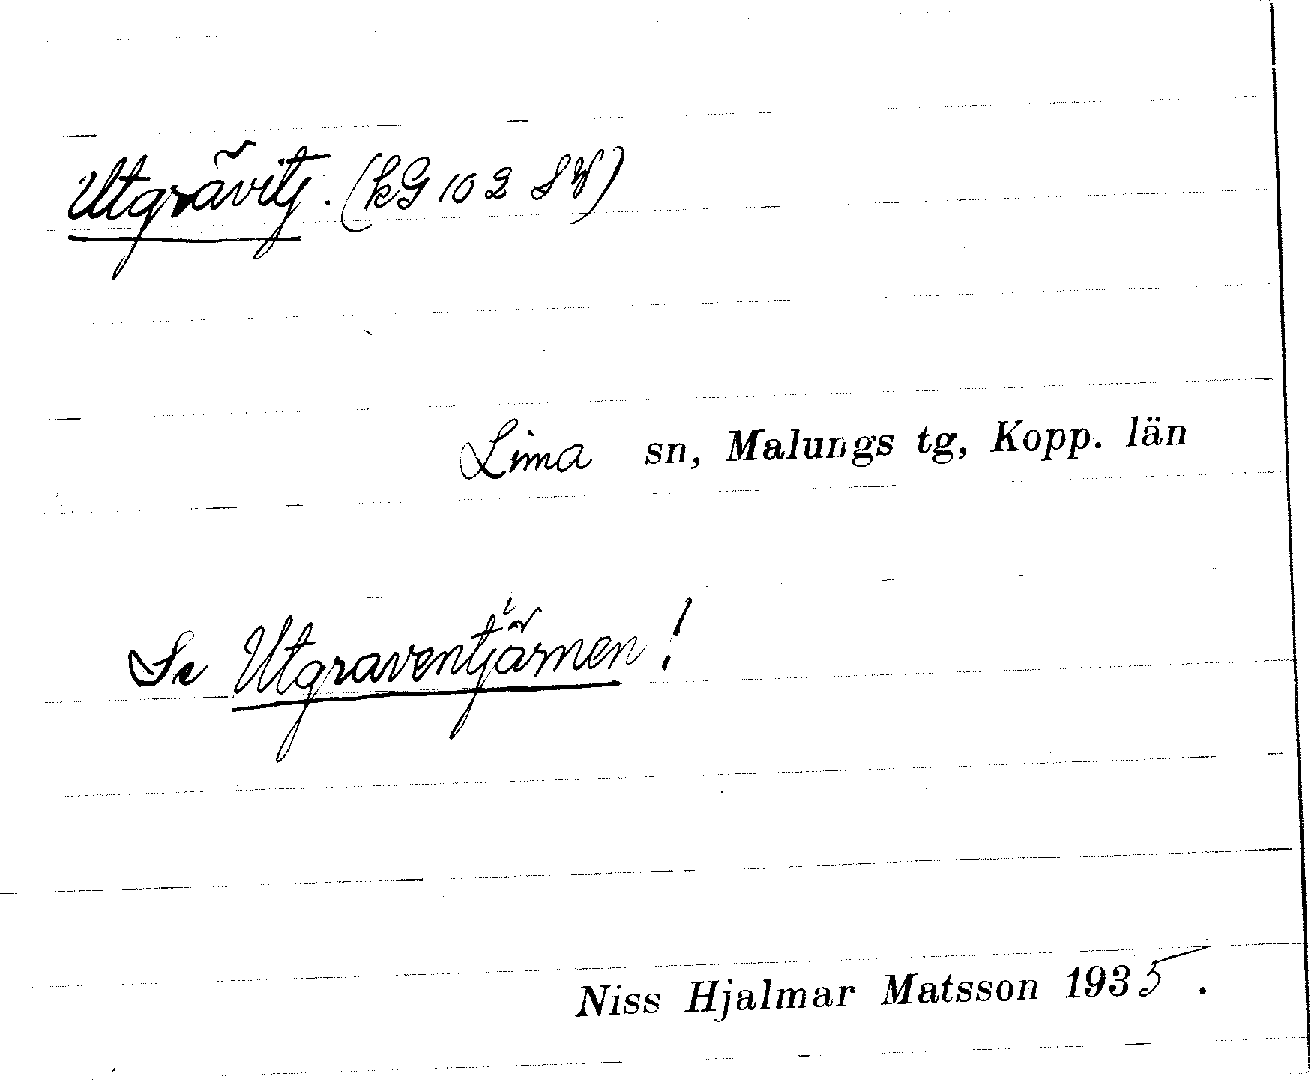 Utgrävitj. (kG 102 SV)
Lima sn, Malungs tg, Kopp. län
Se Utgraventjärnen!
Niss Hjalmar Matsson 1935.